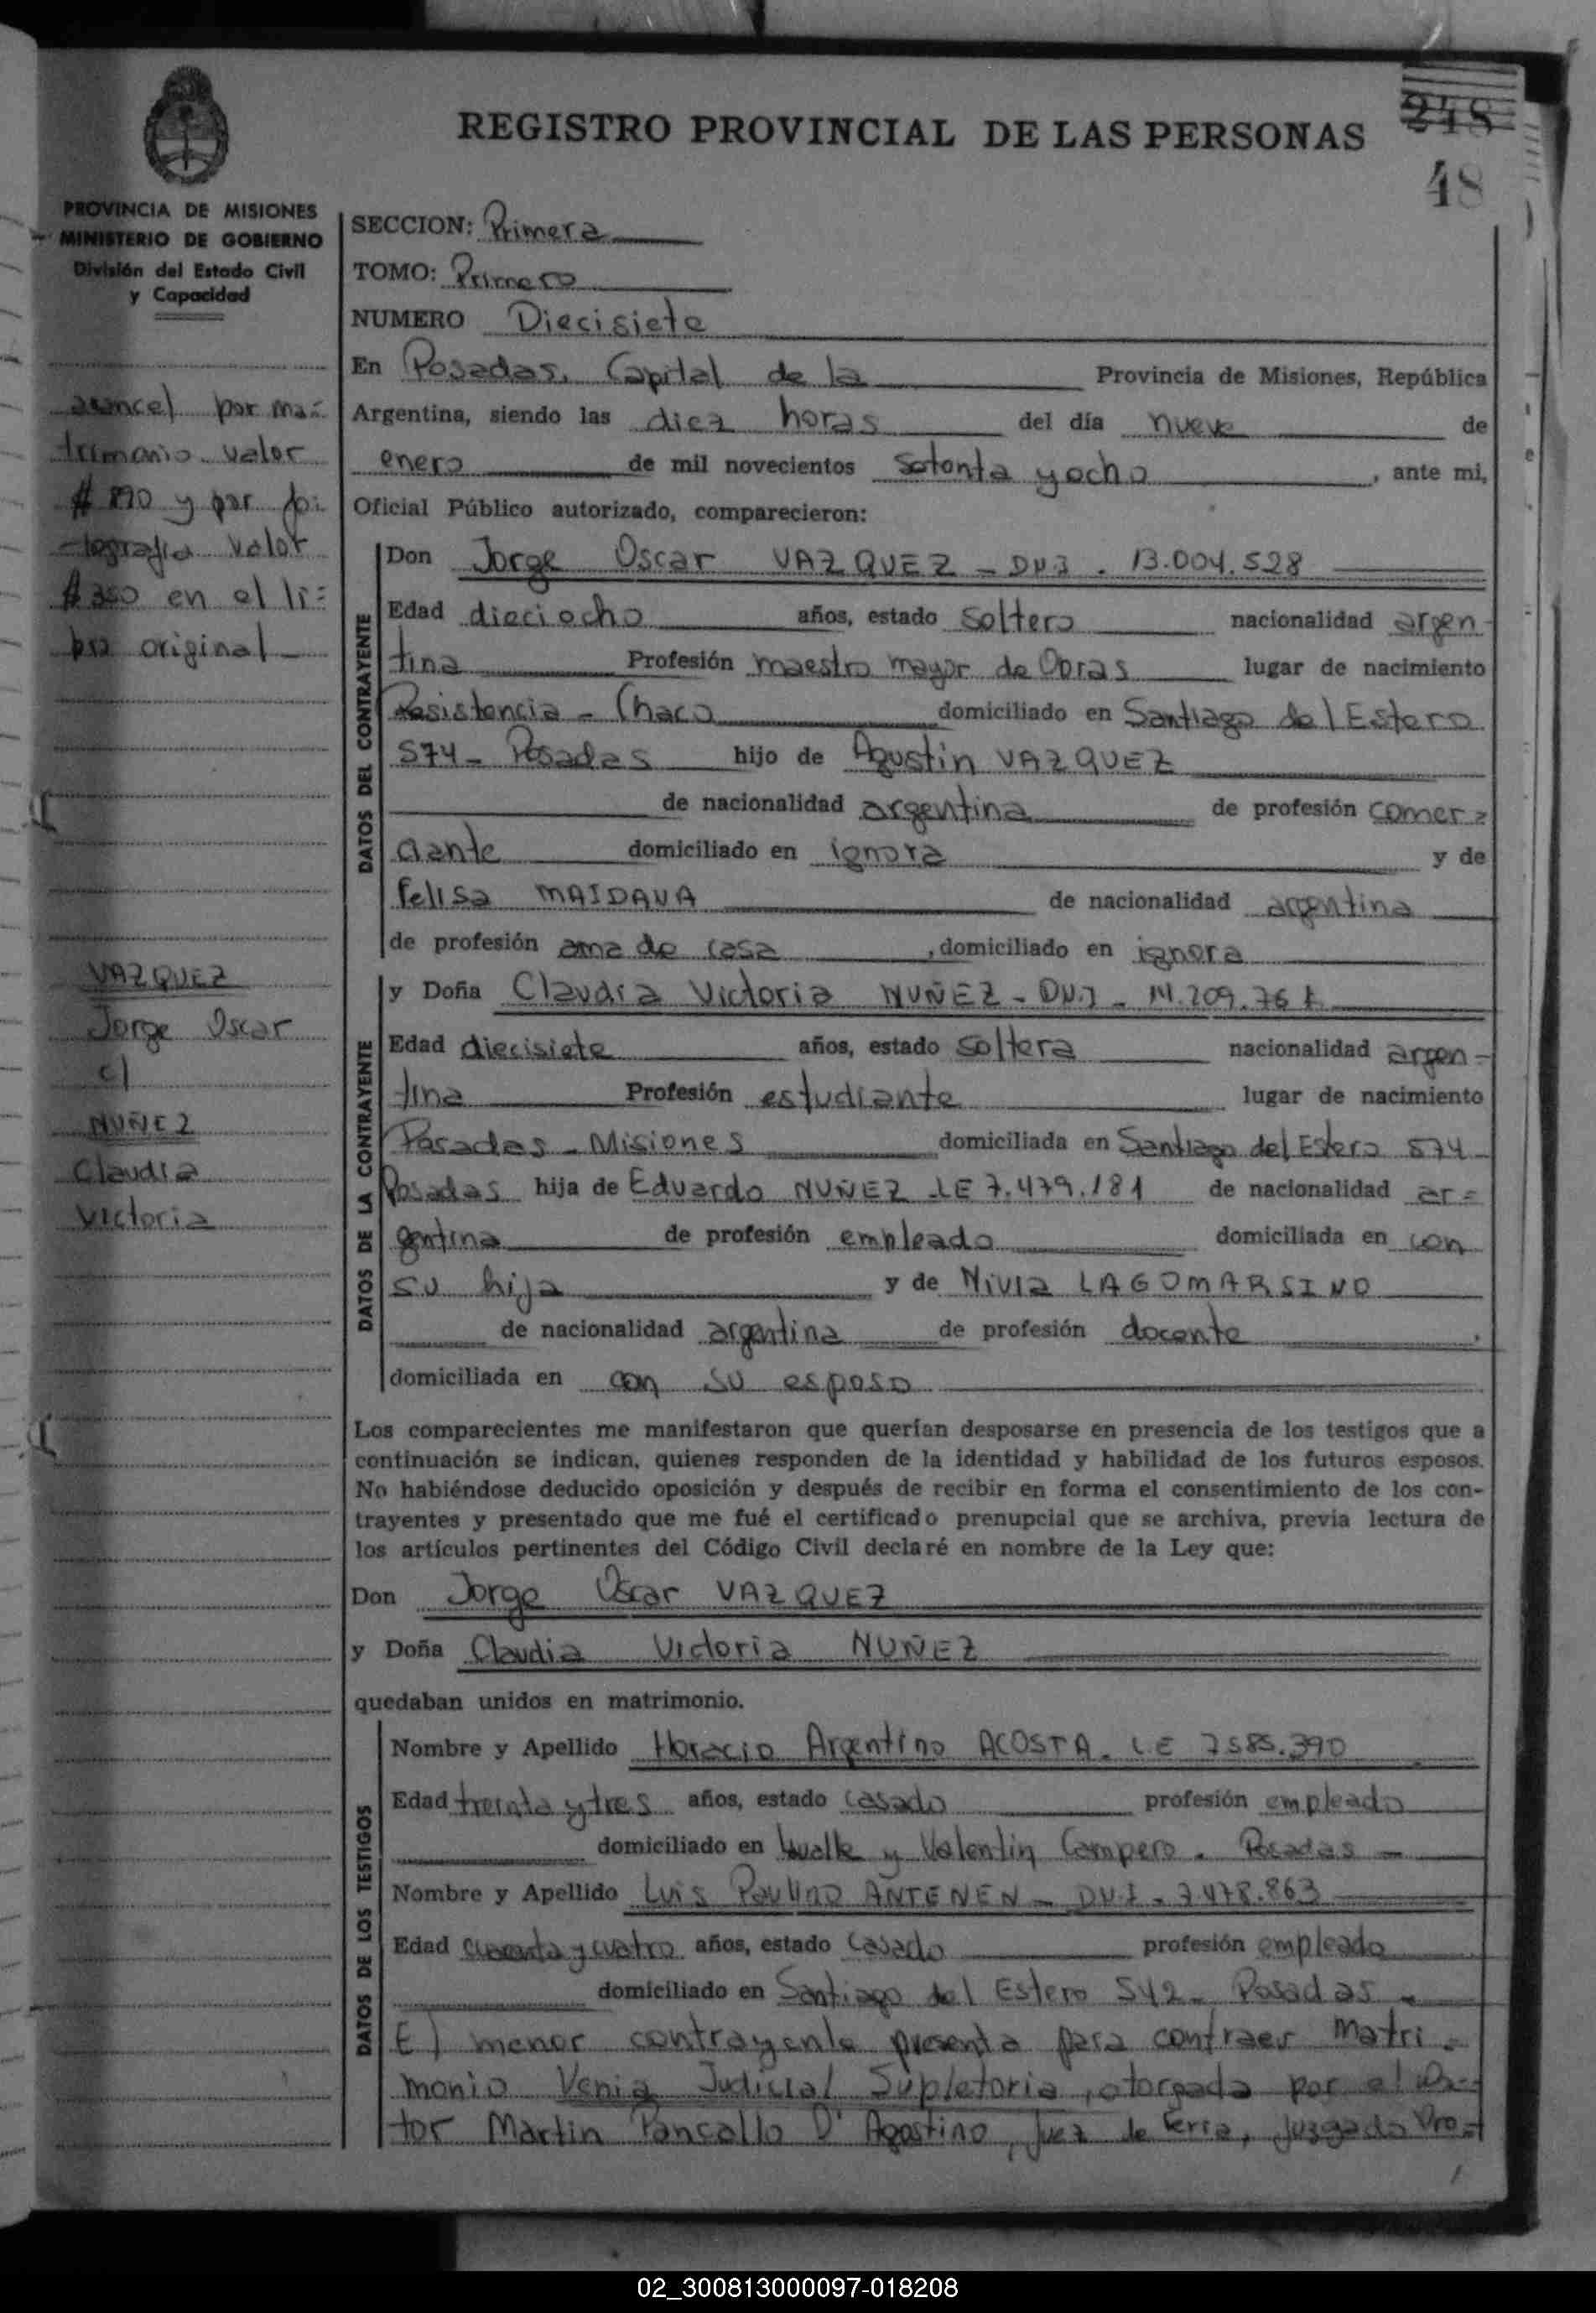 REGISTRO PROVINCIAL DE LAS PERSONAS
248
48
PROVINCIA DE MISIONES
MINISTERIO DE GOBIERNO
División del Estado Civil
y Capacidad
arancel por ma=
trimonio valor
$ 890 y por fo=
tografia valor
$ 350 en el li=
bro original
VAZQUEZ
Jorge Oscar
c/
NUÑEZ
Claudia
Victoria
SECCION: Primera
TOMO: Primero
NUMERO Diecisiete
En Posadas, Capital de la Provincia de Misiones, República
Argentina, siendo las diez horas del día nueve de
enero de mil novecientos setenta y ocho, ante mi,
Oficial Público autorizado, comparecieron:
DATOS DEL CONTRAYENTE
Don Jorge Oscar VAZQUEZ - DNI. 13.004.528
Edad dieciocho años, estado soltero nacionalidad argen-
tina Profesión maestro mayor de Obras lugar de nacimiento
Resistencia - Chaco domiciliado en Santiago del Estero
574 - Posadas hijo de Agustin VAZQUEZ
de nacionalidad argentina de profesión comer=
ciante domiciliado en ignora y de
Felisa MAIDANA de nacionalidad argentina
de profesión ama de casa, domiciliado en ignora
DATOS DE LA CONTRAYENTE
y Doña Claudia Victoria NUÑEZ - DNI - 14.209.761
Edad diecisiete años, estado soltera nacionalidad argen-
tina Profesión estudiante lugar de nacimiento
Posadas - Misiones domiciliada en Santiago del Estero 574 -
Posadas hija de Eduardo NUÑEZ - LE 7.479.181 de nacionalidad ar=
gentina de profesión empleado domiciliada en con
su hija y de Nivia LAGOMARSINO
de nacionalidad argentina de profesión docente,
domiciliada en con su esposo
Los comparecientes me manifestaron que querían desposarse en presencia de los testigos que a
continuación se indican, quienes responden de la identidad y habilidad de los futuros esposos.
No habiéndose deducido oposición y después de recibir en forma el consentimiento de los con-
trayentes y presentado que me fué el certificado prenupcial que se archiva, previa lectura de
los artículos pertinentes del Código Civil declaré en nombre de la Ley que:
Don Jorge Oscar VAZQUEZ
y Doña Claudia Victoria NUÑEZ
quedaban unidos en matrimonio.
DATOS DE LOS TESTIGOS
Nombre y Apellido Horacio Argentino ACOSTA. LE 7585.390
Edad treinta y tres años, estado casado profesión empleado
domiciliado en y Valentin Campero. Posadas -
Nombre y Apellido Luis Paulino ANTENEN - DNI - 7.478.863
Edad cuarenta y cuatro años, estado casado profesión empleado
domiciliado en Santiago del Estero 542 - Posadas -
El menor contrayente presenta para contraer matri=
monio Venia Judicial Supletoria, otorgada por el Doc-
tor Martin Pancallo D' Agostino, juez de Feria, juzgado Pro=
02_300813000097-018208